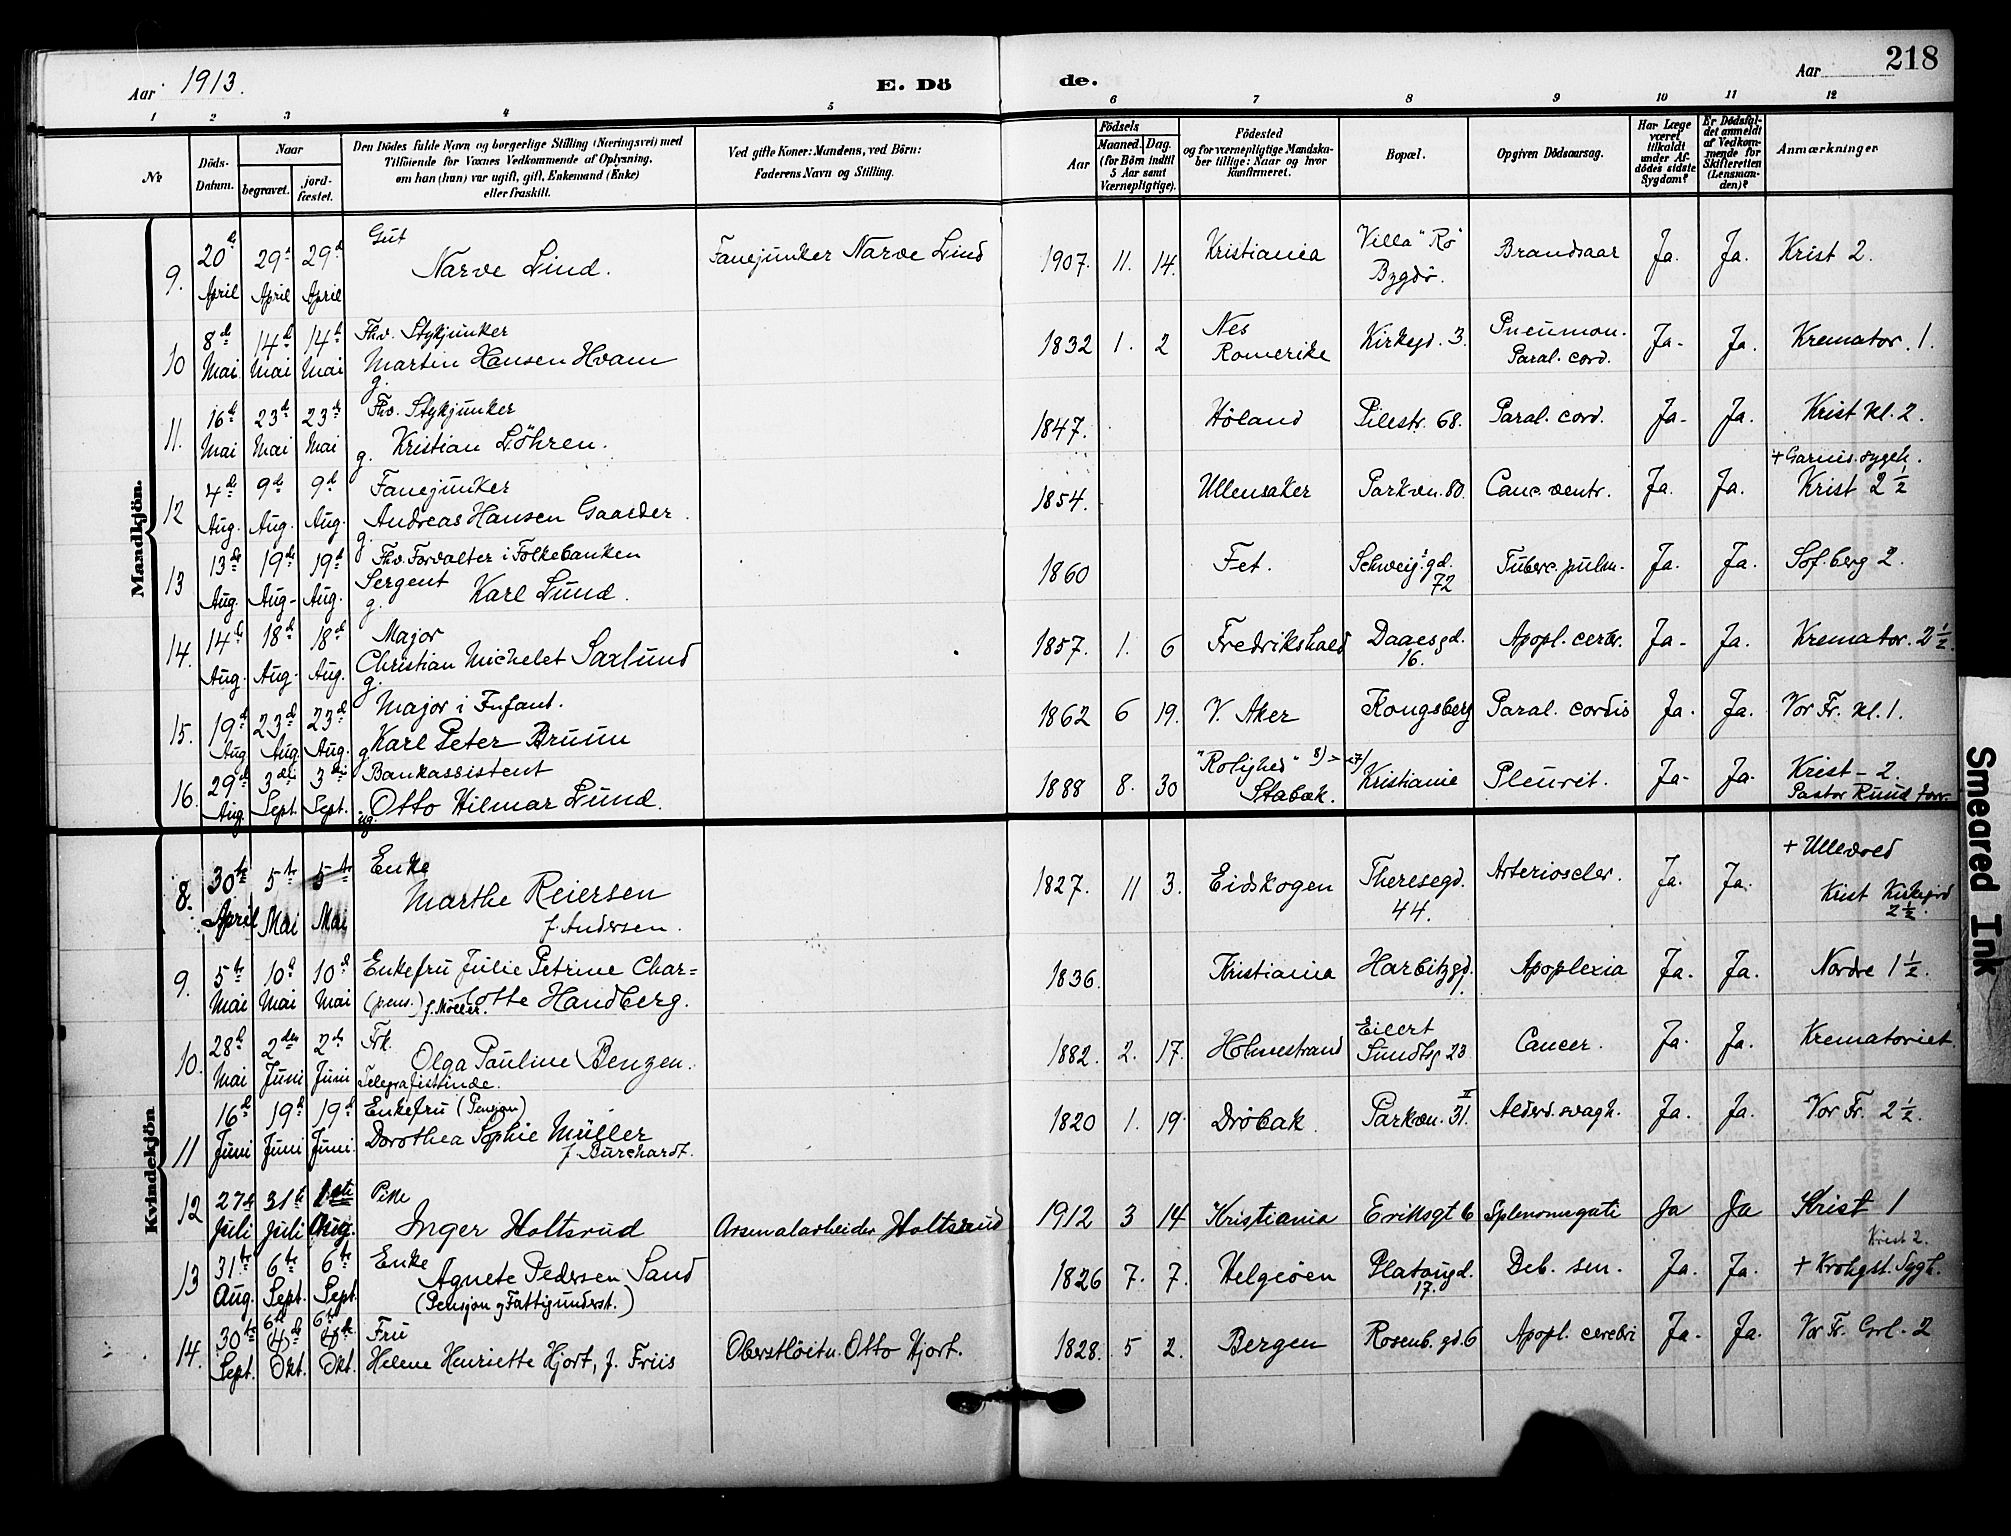 Aar 1913.
E. Dö
de.
Aar
218
1 2 3 4 5 6 7 8 9 10 11 12
Nr
Döds-Datum.
Naar
begravet.
jord-fæstet.
Den Dödes fulde Navn og borgerlige Stilling (Næringsvei) med
Tilföiende for Voxnes Vedkommende af Oplysning,
om han (hun) var ugift, gift, Enkemand (Enke)
eller fraskilt.
Ved gifte Koner: Mandens, ved Börn:
Faderens Navn og Stilling.
Födsels
Aar
Maaned. Dag.
(for Börn indtil 5 Aar samt Værnepligtige).
Födested
og for værnepligtige Mandska-
ber tillige: Naar og hvor
konfirmeret.
Bopæl.
Opgiven Dödsaarsag.
Har Læge været tilkaldt under Af-dödes sidste Sygdom?
Er Dödsfal-det anmeldt af Vedkom-mende for Skifteretten (Lensman-den)?
Anmærkninger
Mandkjön.
9. 20de April 29de April 29de April Gut Narve Lind. Fanejunker Narve Lind 1907. 11. 14. Kristiania Villa "Rö" Bygdö. Brandsaar Ja. Ja. Krist 2.
10 8de Mai 14de Mai 14de Mai Fhv. Stykjunker Martin Hansen Hvam g. 1832 1. 2 Nes Romerike Kirkegd. 3. Pneumon. Paral. cord. Ja. Ja. Kremator. 1.
11. 16de Mai 23de Mai 23de Mai Fhv. Stykjunker g. Kristian Löhren. 1847. Höland Pilestr. 68. Paral. cord. Ja. Ja. Krist kl. 2.
12 4de Aug. 9de Aug. 9de Aug. Fanejunker Andreas Hansen Gaarder g. 1854. Ullensaker Parkvn. 80. Canc. ventr. Ja. Ja. + Garnis. sygeh. Krist 2 1/2
13 13de Aug. 19de Aug. 19de Aug. Fhv. Forvalter i Folkebanken Sergent Karl Lund. g. 1860 Fet. Schweig.gd. 72 Tuberc. pulm. Ja. Ja. Sof.berg 2.
14. 14de Aug. 18de Aug. 18de Aug. Major Christian Michelet Saxlund g. 1857. 1. 6 Fredrikshald Daaesgd. 16. Apopl. cerebr. Ja. Ja. Kremator. 2 1/2.
15. 19de Aug 23de Aug. 23de Aug. Major i Infant. g Karl Peter Bruun 1862 6 19. V. Aker Kongsberg Paral. cordis Ja. Ja. Vor Fr. kl. 1.
16. 29de Aug. 3die Sept. 3die Sept. Bankassistent ug. Otto Hilmar Lund. 1888 8. 30 "Rolighed" Stabæk. Kristiania Pleurit. Ja. Ja. Krist- 2. Pastor Ruud forr.
Kvindekjön
8. 30te April 5te Mai 5te Mai Enke Marthe Reiersen f. Andersen. 1827. 11 3. Eidskogen Theresegd. 44. Arterioscler. Ja. Ja. + Ullevold Krist Kirkegrd 2 1/2.
9. 5te Mai 10de Mai 10de Mai Enkefru Julie Petrine Char=
(pens.) f. Möller. lotte Handberg. 1836. Kristiania Harbitzgd. 1. Apoplexia Ja. Ja. Nordre 1 1/2.
10. 28de Mai 2den Juni 2den Juni Frk. Olga Pauline Benzen. Telegrafistinde. 1882. 2. 17. Holmestrand Eilert Sundtsg 23. Cancer. Ja. Ja. Krematoriet
11 16de Juni 19de Juni 19de Juni. Enkefru (Pensjon) Dorothea Sophie Müller f. Burchardt. 1820 1. 19. Dröbak Parkvn. 31. II Alderd. svagh. Ja. Ja. Vor Fr. 2 1/2.
12 27de Juli 31te Juli 1ste Aug. Pike Inger Holtsrud Arsenalarbeider Holtsrud 1912 3 14 Kristiania Eriksgt 6 Splenomegati Ja Ja Krist 1
13 31te Aug. 6te Sept. 6te Sept. Enke Agnete Pedersen Sand (Pensjon og Fattigunderst.) 1826 7. 7. Helgeöen Platougd. 17. Deb. sen. Ja. Ja. Krist 2. + Krohgst. Sygh.
14. 30te Sept. 6te 4de Okt. 6te 4de Okt. Fru Helene Henriette Hjort, f. Friis Oberstlöitn. Otto Hjort. 1828. 5 2. Bergen Rosenb. gd. 6 Apopl. cerebri Ja. Ja. Vor Fr. Grl. 2
Smeared Ink